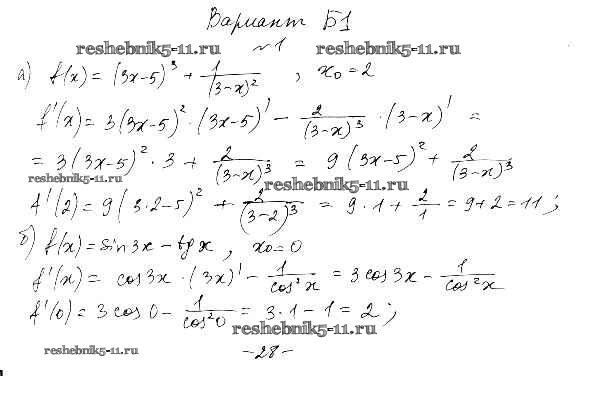 Вариант Б1
reshebnik5-11.ru №1 reshebnik5-11.ru
а) f(x) = (3x-5)³ + 1/(3-x)² , x₀ = 2
f'(x) = 3(3x-5)² · (3x-5)' - 2/(3-x)³ · (3-x)' =
= 3(3x-5)² · 3 + 2/(3-x)³ = 9(3x-5)² + 2/(3-x)³
reshebnik5-11.ru reshebnik5-11.ru
f'(2) = 9(3·2-5)² + 2/(3-2)³ = 9·1 + 2/1 = 9+2 = 11;
б) f(x) = sin3x - tgx , x₀=0
f'(x) = cos3x · (3x)' - 1/cos²x = 3cos3x - 1/cos²x
f'(0) = 3cos0 - 1/cos²0 = 3·1 - 1 = 2;
reshebnik5-11.ru
reshebnik5-11.ru -28-